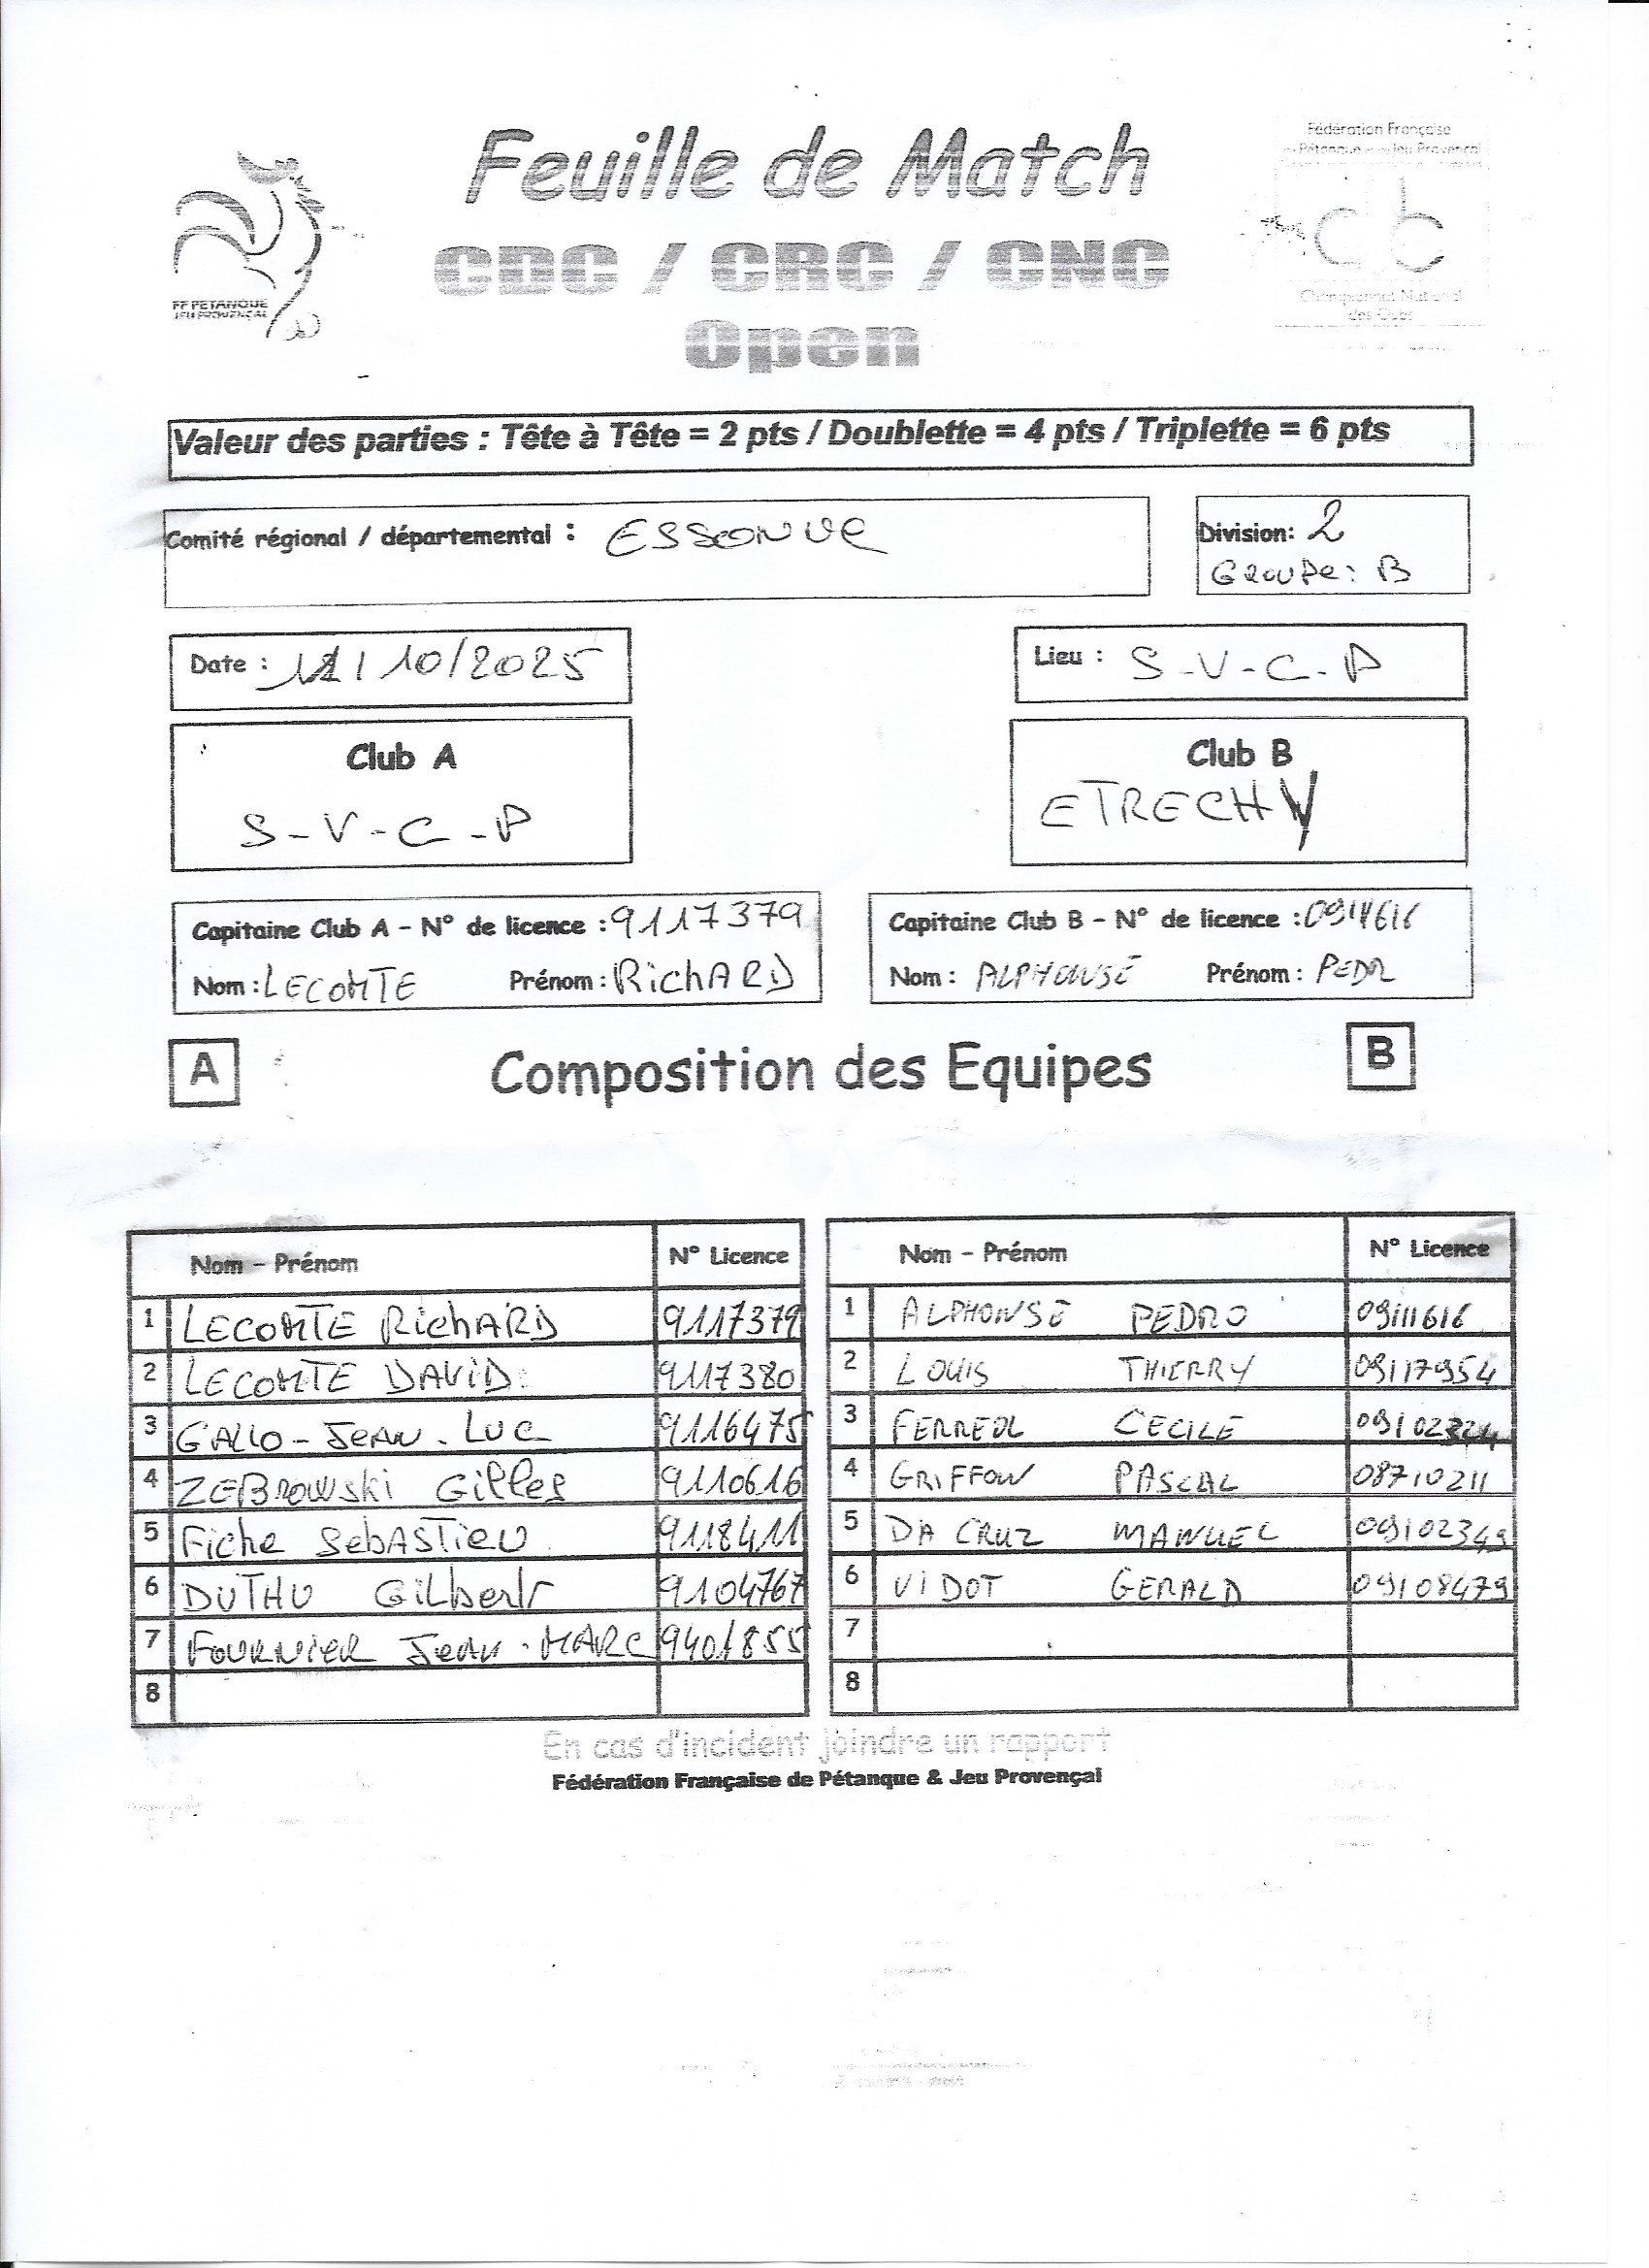 Feuille de Match
CDC / CRC / CNC
Open
FF PETANQUE
JEU PROVENÇAL
Fédération Française
de Pétanque et de Jeu Provençal
Championnat National
des Clubs
Valeur des parties : Tête à Tête = 2 pts / Doublette = 4 pts / Triplette = 6 pts
Comité régional / départemental : ESSONNE
Division: 2
Groupe: B
Date : 11/10/2025
Lieu : S-V-C-P
Club A
S-V-C-P
Club B
ETRECHY
Capitaine Club A - N° de licence : 9117379
Nom : LECOMTE Prénom : RichARD
Capitaine Club B - N° de licence :
Nom : ALPHONSE Prénom : PEDR
A Composition des Equipes B
Nom - Prénom N° Licence
1 LECOMTE RichARD 9117379
2 LECOMTE DAVID 9117380
3 GALLO-JeAN-LUC 9116475
4 ZEBROWSki Gilles 9110616
5 Fiche SebASTieN 9118411
6 DUTHU Gilbert 9104767
7 FOURNIER JeAN-MARC 9401855
8
Nom - Prénom N° Licence
1 ALPHONSE PEDRO 09111616
2 LOUIS THIERRY 09117954
3 FERREOL CECILE
4 GRIFFON PASCAL 08710211
5 DA CRUZ MANUEL 09102349
6 VIDOT GERALD 09108479
7
8
En cas d'incident joindre un rapport
Fédération Française de Pétanque & Jeu Provençal